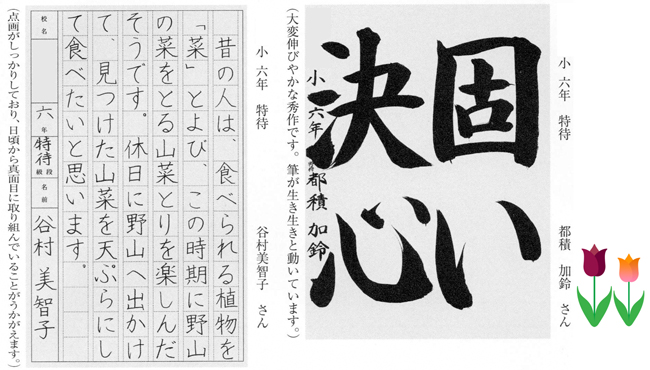 小 六年 特待 都積 加鈴 さん
固い
決心
小六年 特待 都積 加鈴
(大変伸びやかな秀作です。筆が生き生きと動いています。)
小 六年 特待 谷村美智子 さん
昔の人は、食べられる植物を
「菜」とよび、この時期に野山
の菜をとる山菜とりを楽しんだ
そうです。休日に野山へ出かけ
て、見つけた山菜を天ぷらにし
て食べたいと思います。
校名 六年 特待 段級 名前 谷村 美智子
(点画がしっかりしており、日頃から真面目に取り組んでいることがうかがえます。)